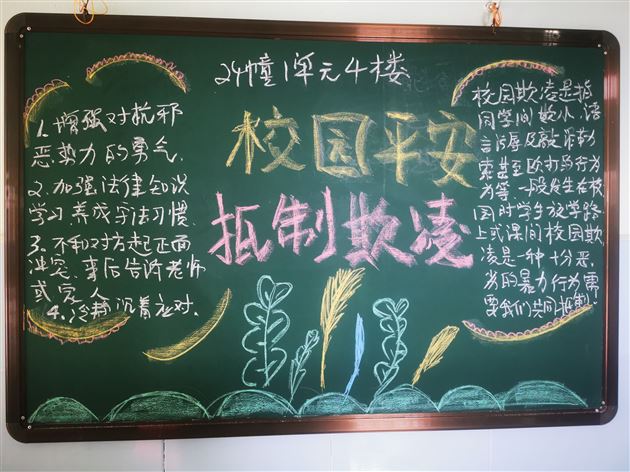 24幢1单元4楼
校园平安
抵制欺凌
1.增强对抗邪
恶势力的勇气.
2.加强法律知识
学习养成守法习惯.
3.不和对方起正面
冲突.事后告诉老师
或家人
4.冷静沉着应对.
校园欺凌是指
同学间欺小、语
言污辱及敲诈勒
索甚至殴打的行为
为等.一般发生在校
园时学生放学路
上或课间校园欺
凌是一种十分恶
劣的暴力行为需
要我们共同抵制!